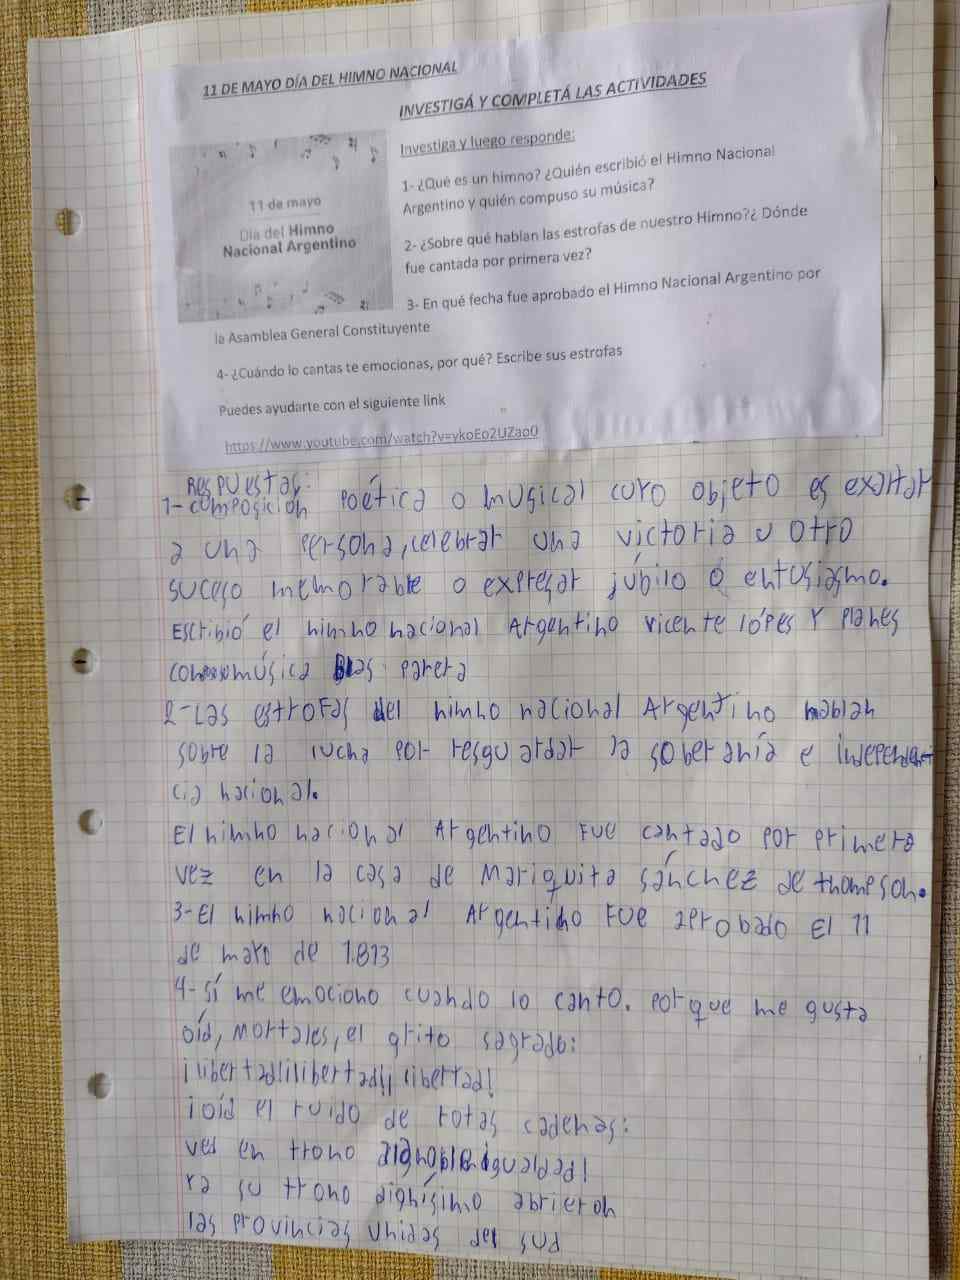 11 DE MAYO DÍA DEL HIMNO NACIONAL
INVESTIGÁ Y COMPLETÁ LAS ACTIVIDADES
11 de mayo
Día del Himno
Nacional Argentino
Investiga y luego responde:
1- ¿Qué es un himno? ¿Quién escribió el Himno Nacional
Argentino y quién compuso su música?
2- ¿Sobre qué hablan las estrofas de nuestro Himno?¿ Dónde
fue cantada por primera vez?
3- En qué fecha fue aprobado el Himno Nacional Argentino por
la Asamblea General Constituyente
4- ¿Cuándo lo cantas te emocionas, por qué? Escribe sus estrofas
Puedes ayudarte con el siguiente link
https://www.youtube.com/watch?v=ykoEo2UZao0
Respuestas:
1- composición poética o musical cuyo objeto es exaltar
a una persona, celebrar una victoria u otro
suceso memorable o expresar júbilo o entusiasmo.
Escribió el himno nacional Argentino vicente lópes y planes
música Blas parera
2- Las estrofas del himno nacional Argentino hablan
sobre la lucha por resguardar la soberanía e independen
cia nacional.
El himno nacional Argentino fue cantado por primera
vez en la casa de mariquita sánchez de thomeson.
3- El himno nacional Argentino fue aprobado El 11
de mayo de 1.813
4- sí me emociono cuando lo canto. porque me gusta
oíd, mortales, el grito sagrado:
¡libertad!¡libertad!¡libertad!
¡oíd el ruido de rotas cadenas:
ves en trono a la noble igualdad!
ya su trono dignísimo abrieron
las provincias unidas del sud